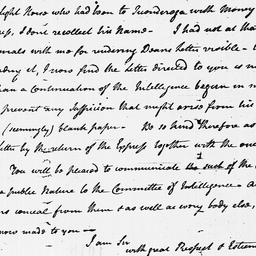 light Horse who had been to Ticonderoga with Money
ress, I don't recollect his Name - I had not at that
rials with me for rendering Deans Letter visible -
I now find the Letter directed to you is
than a Continuation of the Intelligence begun in
prevent any Suspicion that might arise from his
(seemingly) blank paper - be so kind therefore as
letter by the return of the Express together with the one
You will be pleased to communicate such of the
a public Nature to the Committee of Intelligence -
conceal from them & as well as every body else,
now made to you -
I am Sir
with great Respect & Esteem